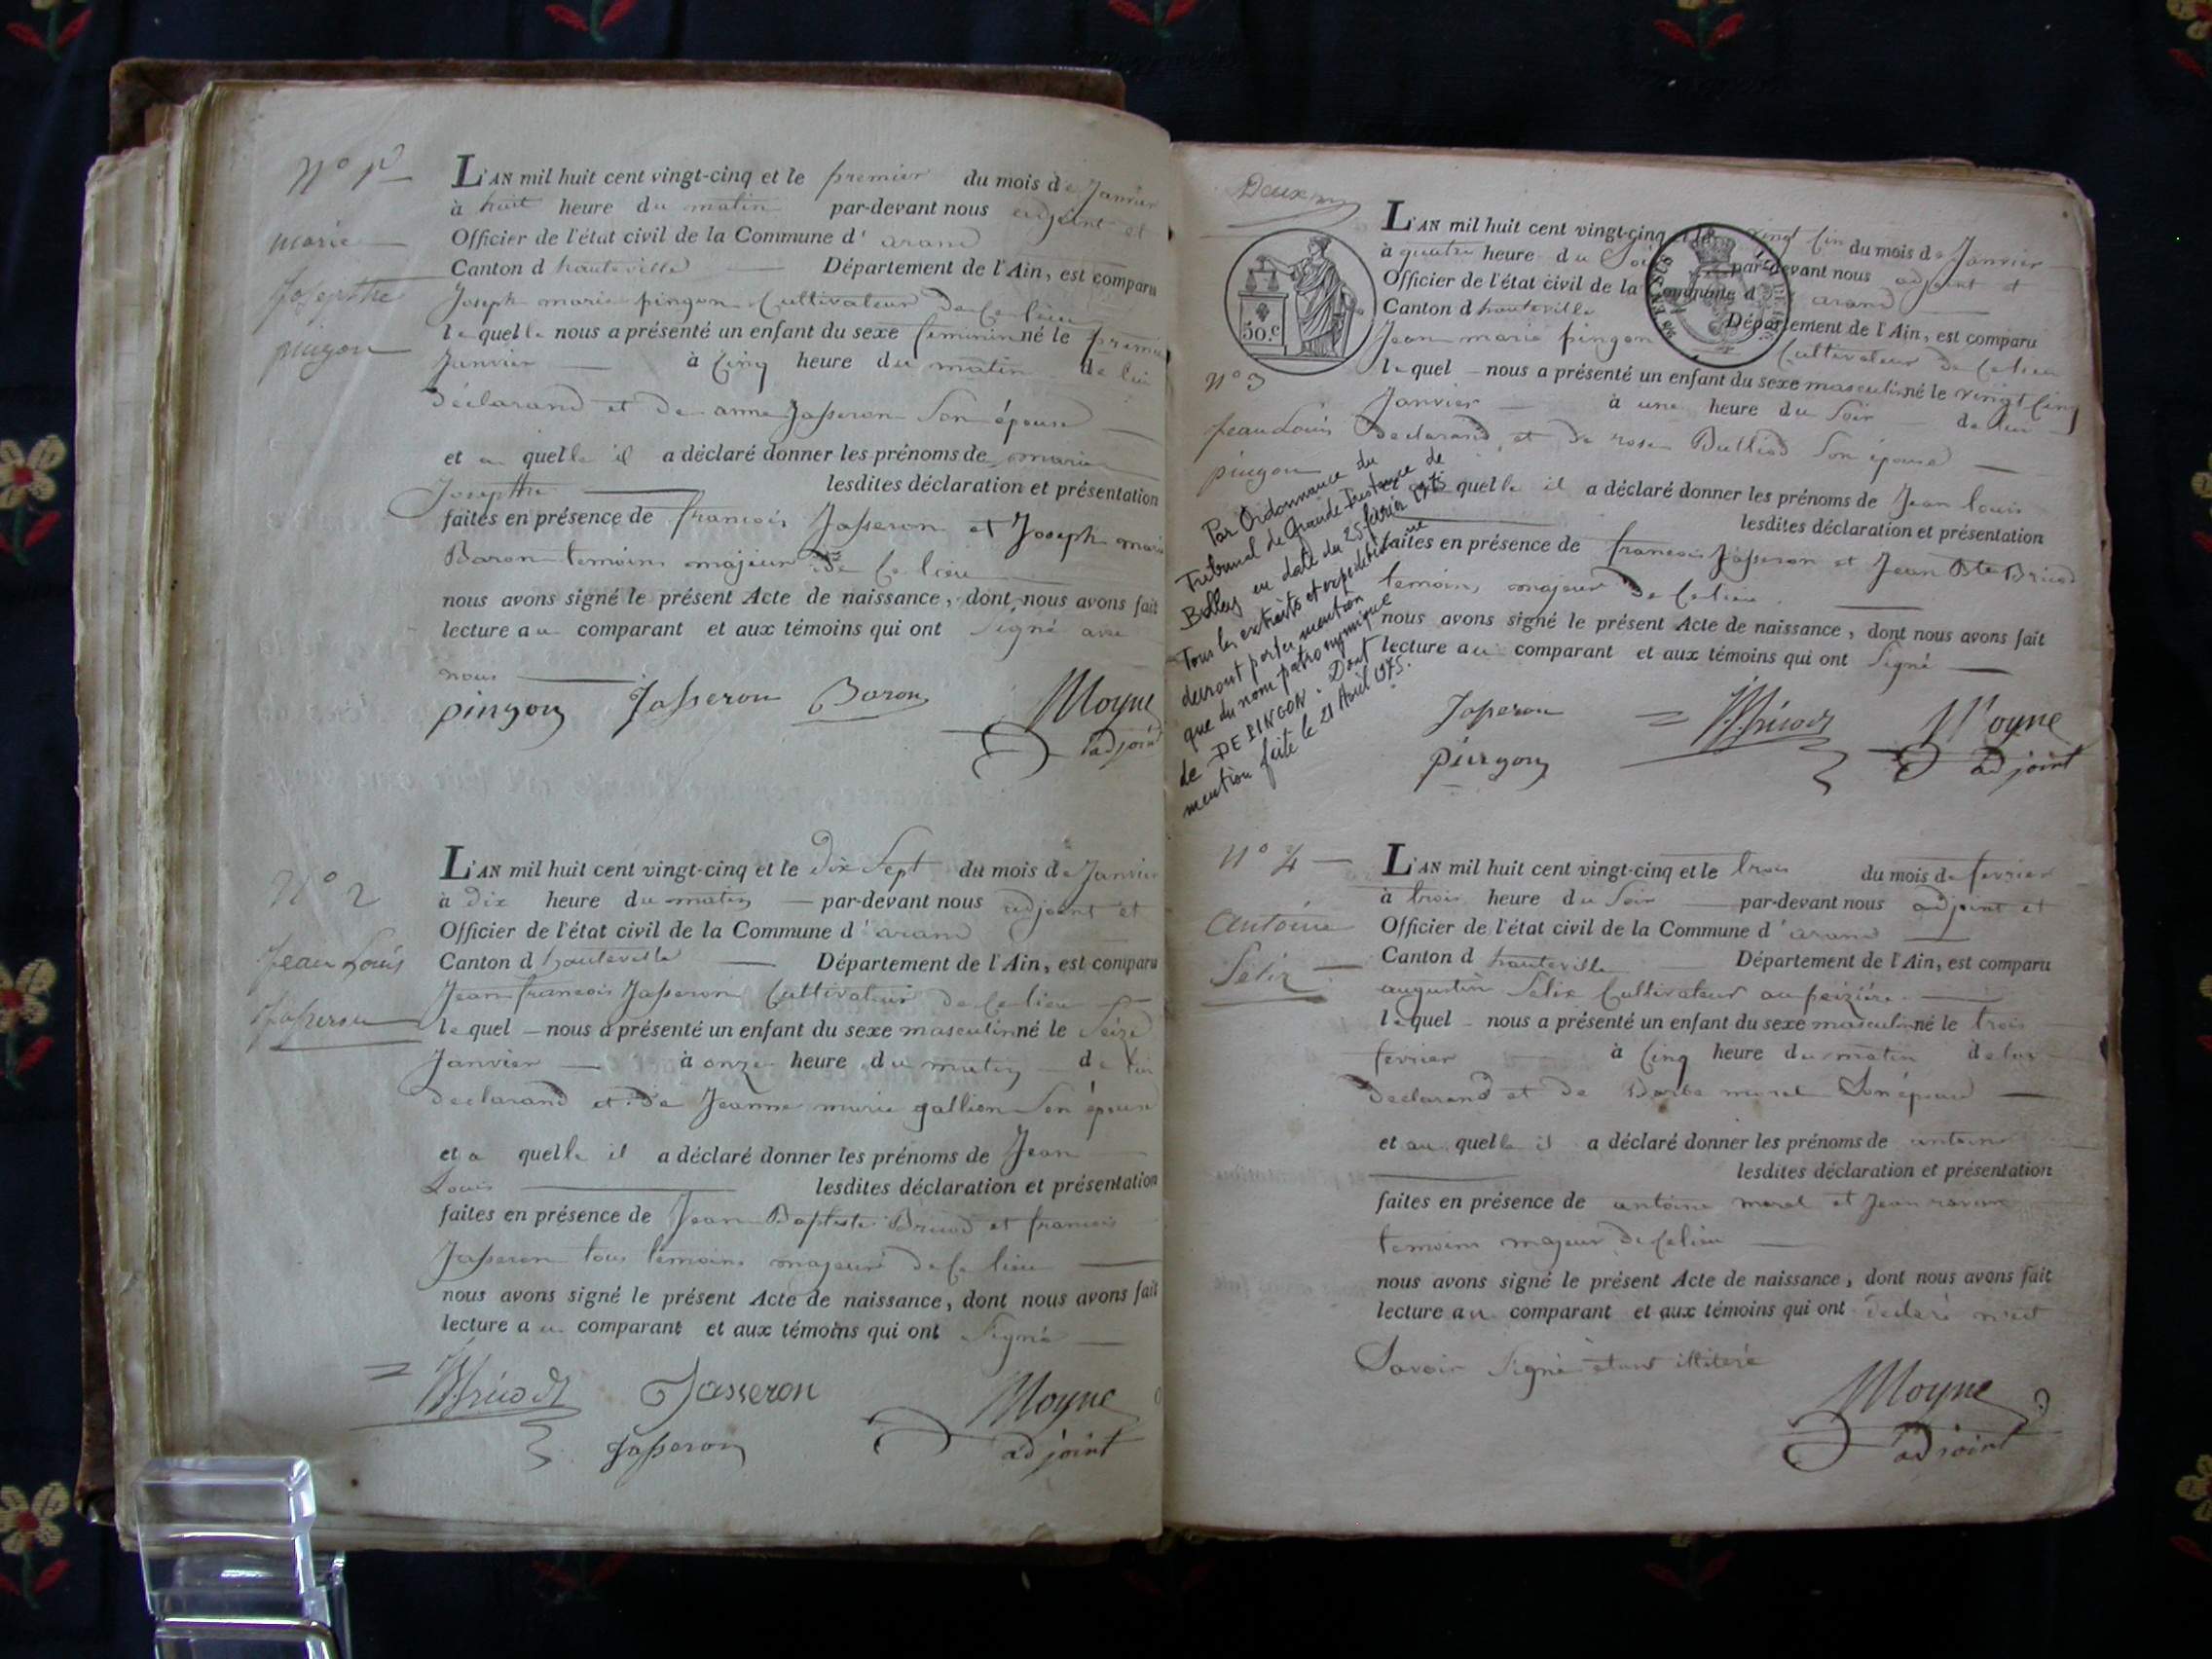 N° 1er
marie
Josephte
pingon
L'AN mil huit cent vingt-cinq et le premier du mois de Janvier
à huit heure du matin par-devant nous adjoint et
Officier de l'état civil de la Commune d' arand
Canton d hauteville Département de l'Ain, est comparu
Joseph marie pingon Cultivateur de Ce lieu
lequelle nous a présenté un enfant du sexe feminin né le premier
Janvier à Cinq heure du matin de lui
déclarand et de anne Jasseron Son épouse
et a quelle il a déclaré donner les prénoms de marie
Josephte lesdites déclaration et présentation
faites en présence de francois Jasseron et Joseph marie
Baron temoins majeur de Ce lieu
nous avons signé le présent Acte de naissance, dont nous avons fait
lecture au comparant et aux témoins qui ont Signé avec
nous
pingon Jasseron Baron Moyne
adjoint
N° 2
Jean Louis
Jasseron
L'AN mil huit cent vingt-cinq et le dix Sept du mois de Janvier
à dix heure du matin par-devant nous adjoint et
Officier de l'état civil de la Commune d' arand
Canton d hauteville Département de l'Ain, est comparu
Jean francois Jasseron Cultivateur de Ce lieu
lequel nous a présenté un enfant du sexe masculin né le Seize
Janvier à onze heure du matin de lui
declarand et de Jeanne marie gallion Son épouse
et a quelle il a déclaré donner les prénoms de Jean
Louis lesdites déclaration et présentation
faites en présence de Jean Baptiste Bricod et francois
Jasseron tous temoins majeurs de Ce lieu
nous avons signé le présent Acte de naissance, dont nous avons fait
lecture au comparant et aux témoins qui ont Signé
Bricod Jasseron Moyne
Jasseron adjoint
Deux
50.c
N° 3
Jean Louis
pingon
L'AN mil huit cent vingt-cinq et le vingt Cinq du mois de Janvier
à quatre heure du Soir par-devant nous adjoint et
Officier de l'état civil de la Commune d' arand
Canton d hauteville Département de l'Ain, est comparu
Jean marie pingon Cultivateur de Ce lieu
lequel nous a présenté un enfant du sexe masculin né le vingt Cinq
Janvier à une heure du Soir de lui
declarand et de rose Bulliod Son épouse
et a quelle il a déclaré donner les prénoms de Jean louis
lesdites déclaration et présentation
faites en présence de francois Jasseron et Jean Bte Bricod
temoins majeur de Ce lieu
nous avons signé le présent Acte de naissance, dont nous avons fait
lecture au comparant et aux témoins qui ont Signé
Jasseron Bricod Moyne
pingon adjoint
Par Ordonnance du
Tribunal de Grande Instance de
Belley en date du 25 février 1975
Tous les extraits et expéditions ne
devront porter mention
que du nom patronymique
de DE PINGON. Dont
mention faite le 21 Avril 1975.
N° 4
antoine
Selix
L'AN mil huit cent vingt-cinq et le trois du mois de fevrier
à trois heure du Soir par-devant nous adjoint et
Officier de l'état civil de la Commune d' arand
Canton d hauteville Département de l'Ain, est comparu
augustin Selix Cultivateur au
lequel nous a présenté un enfant du sexe masculin né le trois
fevrier à Cinq heure du matin de lui
declarand et de Barbe morel Son épouse
et au quelle il a déclaré donner les prénoms de antoine
lesdites déclaration et présentation
faites en présence de antoine morel et Jean
temoins majeur de Ce lieu
nous avons signé le présent Acte de naissance, dont nous avons fait
lecture au comparant et aux témoins qui ont declaré
Savoir Signé étant illiteré
Moyne
adjoint